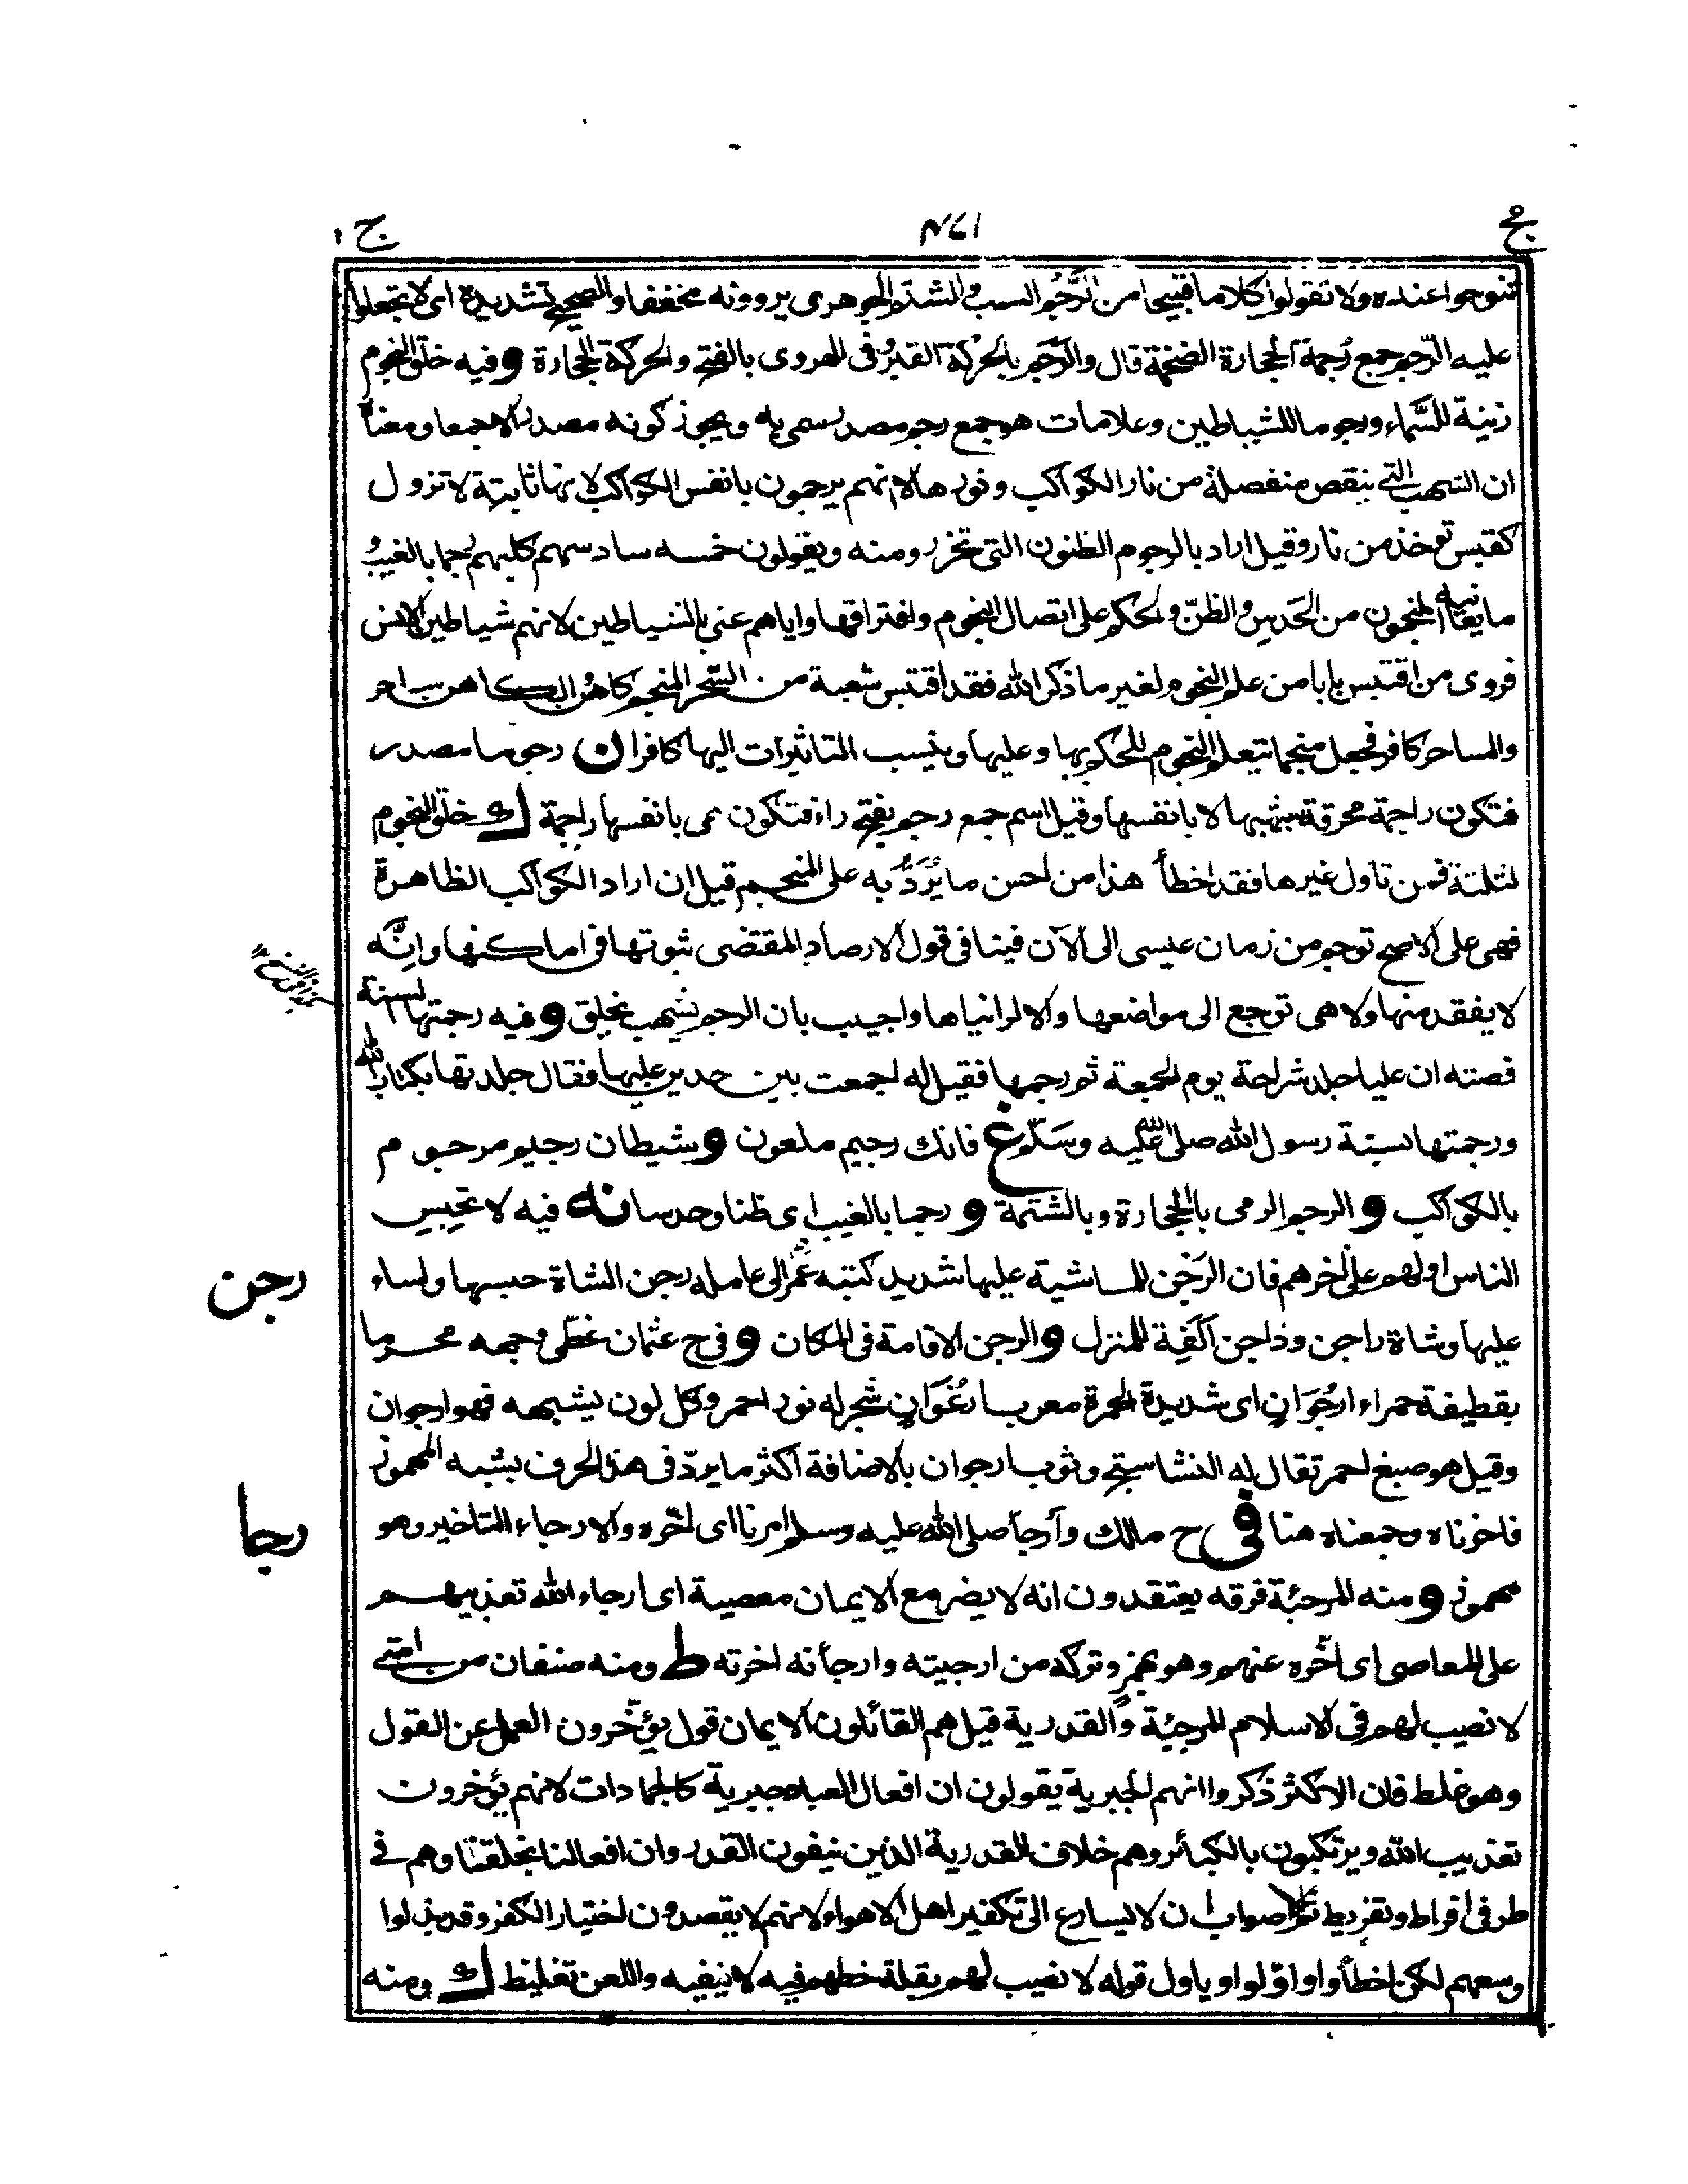 ج ١
٤٦١
تنوحوا عنده ولا تقولوا كلاما قبيحا من الرَّجْم السب والشتم الجوهرى يروونه مخففا والصحيح تشديده اى لا تجعلوا
عليه الرُّجم جمع رُجمة الحجارة الضخمة قال والرَّجَم بالحركة القبر وفى الهروى بالفتح والحركة الحجارة و فيه خلق النجوم
زينة للسَّماء ورجوما للشياطين وعلامات هو جمع رجم مصدر سمى به ويجوز كونه مصدرا لا جمعا ومعناه
ان الشهب التى تنقص منفصلة من نار الكواكب ونورها لا انهم يرجمون بانفس الكواكب لانها ثابتة لا تزول
كقبس تؤخذ من نار وقيل اراد بالرجوم الظنون التى تحزر ومنه ويقولون خمسه سادسهم كلبهم رجما بالغيب و
ما يعانيه المنجمون من الحَدسِ والظنّ والحكم على اتصال النجوم وافتراقها واياهم عنى بالشياطين لانهم شياطين الانس
فروى من اقتبس بابا من علم النجوم لغير ما ذكر الله فقد اقتبس شعبة من السِّحر المنجم كاهن والكاهن ساحر
والساحر كافر فجعل منجما تتعلم النجوم للحكم بها وعليها وينسب التاثيرات اليها كافرا ن رجوما مصدر
فتكون راجمة محرقة بشهبها لا بانفسها وقيل اسم جمع رجم بفتح راء فتكون هى بانفسها راجمة ك خلق النجوم
لثلثة فمن تاول غيرها فقد اخطأ هذا من احسن ما يُرَدُّ به على المنجم قيل ان اراد الكواكب الظاهرة
فهى على الاصح توجم من زمان عيسى الى الآن فينافى قول الارصاد المقتضى ثبوتها فى اماكنها وانَّه
لا يفقد منها ولا هى توجع الى مواضعها والا لرانياها واجيب بان الرجم بشهب تخلق و فيه رجمتها لسنة
قصته ان عليا جلد شراحة يوم الجمعة ثم رجمها فقيل له اجمعت بين حدين عليها فقال جلدتها بكتاب الله
ورجمتها بسنة رسول الله صلى الله عليه وسَلّم غ فانك رجيم ملعون و شيطان رجيم مرجوم
بالكواكب و الرجم الرمى بالحجارة وبالشتمة و رجما بالغيب اى ظنا وحدسا نه فيه لا تحبس
رجن
الناس اولهم على اخرهم فان الرَجْن للماشية عليها شديد كتبه عمر الى عامله رجن الشاة حبسها واساء
عليها وشاة راجن وداجن آلفة للمنزل و الرجن الاقامة فى المكان و فى ح عثمان غطّى وجهه محرما
بقطيفة حمراء ارجُوَانٍ اى شديدة الحمرة معرب ارغُوَانٍ شجر له نور احمر وكل لون يشبهه فهو ارجوان
وقيل هو صبغ احمر تقال له النشاستج وثوب ارجوان بالاضافة اكثر ما يردّ فى هذا الحرف بشبه المهموز
رجا
فاخرناه وجمعناه هنا فى ح مالك وأرجأ صلى الله عليه وسلم امرنا اى اخّره والارجاء التاخير وهو
مهموز و منه المرجئة فرقه يعتقدون انه لا يضر مع الايمان معصية اى ارجاء الله تعذيبهم
على المعاصى اى اخّره عنهم وهو بهمز وتركه من ارجيته وارجأته اخرته ط ومنه صنفان من امتى
لا نصيب لهم فى الاسلام المرجئة والقدرية قيل هم القائلون الايمان قول يؤخّرون العمل عن القول
وهو غلط فان الاكثر ذكروا انهم الجبرية يقولون ان افعال العباد جبرية كالجمادات لانهم يؤخرون
تعذيب الله ويرتكبون بالكبائر وهم خلاف القدرية الذين ينفون القدر وان افعالنا بخلقنا وهم فى
طرفى افراط وتفريط ثم الصواب ان لا يسارع الى تكفير اهل الاهواء لانهم لا يقصدون اختيار الكفر وقد بذلوا
وسعهم لكن اخطأوا او اوّلوا وياول قوله لا نصيب لهم بقلة حظهم فيه لا نفيه واللعن تغليظ ك ومنه